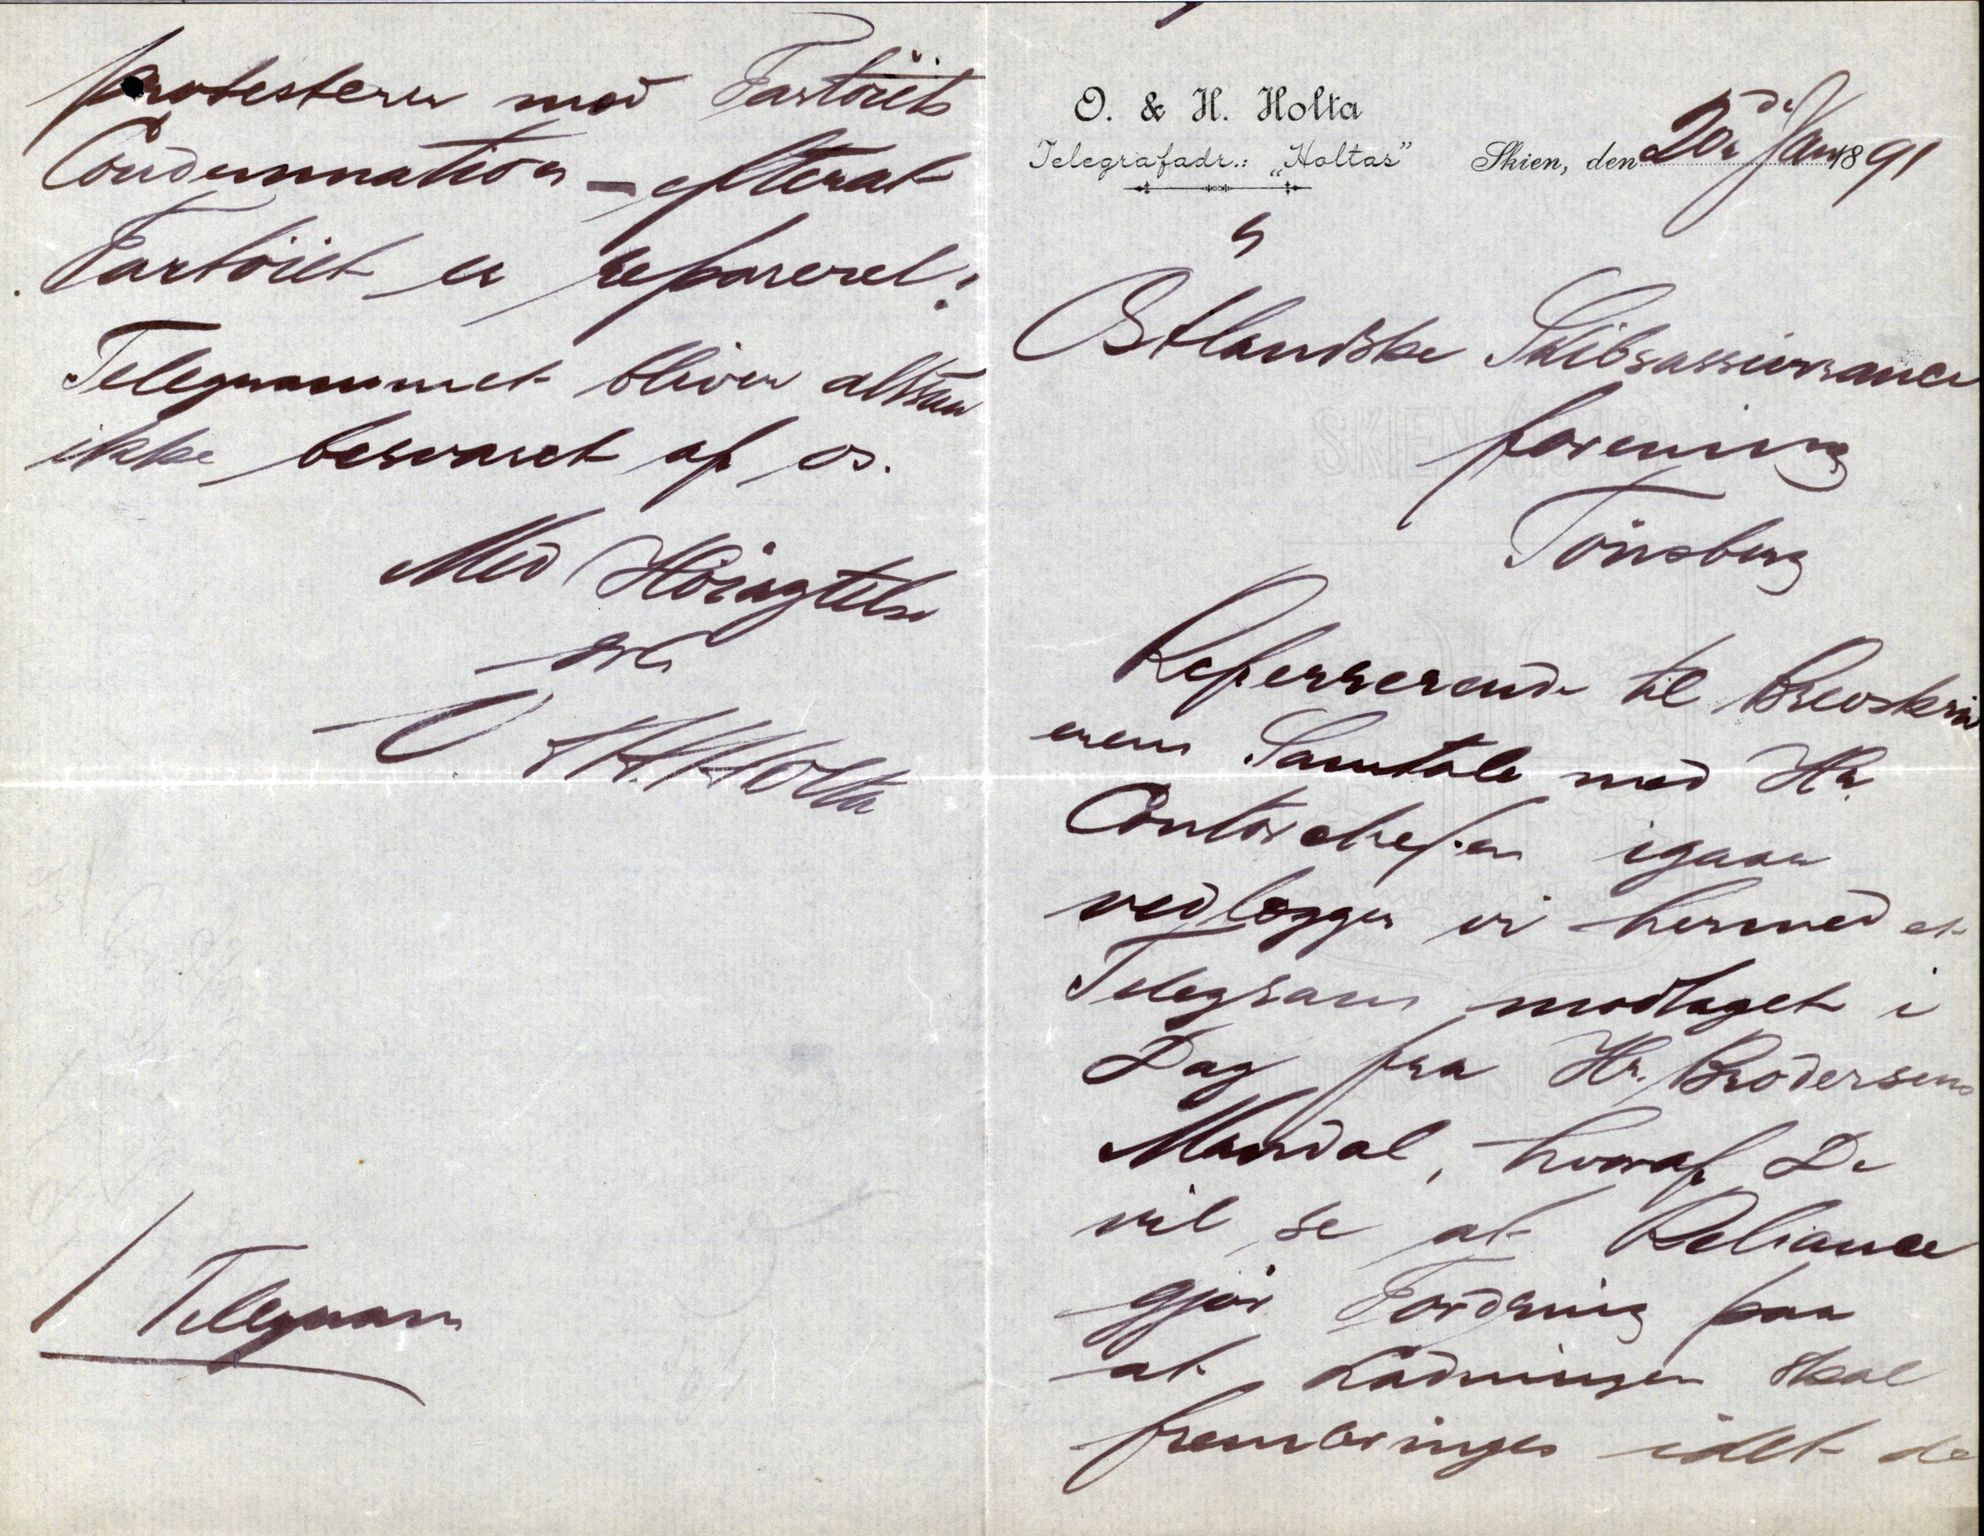 O. & H. Holta
Telegrafadr.: „Holtas”
Skien, den 20de Jan 1891
Östlandske Skibsassurrance
forening
Tönsberg
Refererrende til Brevskriv
erens Samtale med Hr.
Contorchefen igaar
vedlægger vi hermed et
Telegram modtaget i
Dag fra Hr. Brodersen
Mandal, hvoraf De
vil se at Reliance
gjör Fordring paa
at Ladningen skal
frembringes idet de
protesterer mod Fartöiets
Condemnation – efterat
Fartöiet er repareret!
Telegrammet bliver altsaa
ikke besvaret af os.
Med Höiagtelse
O. & H. Holta
/ Telegram